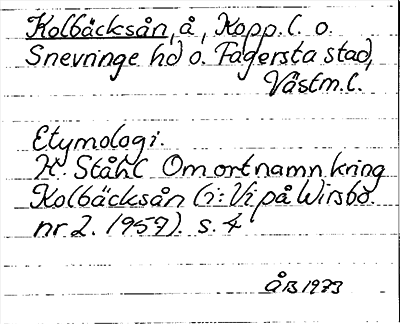 Kolbäcksån, å, Kopp. l. o.
Snevringe hd o. Fagersta stad,
Västm. l.
Etymologi.
H. Ståhl Om ortnamn kring
Kolbäcksån (i: Vi på Wirsbo.
nr 2. 1957). s. 4
ÅB 1973